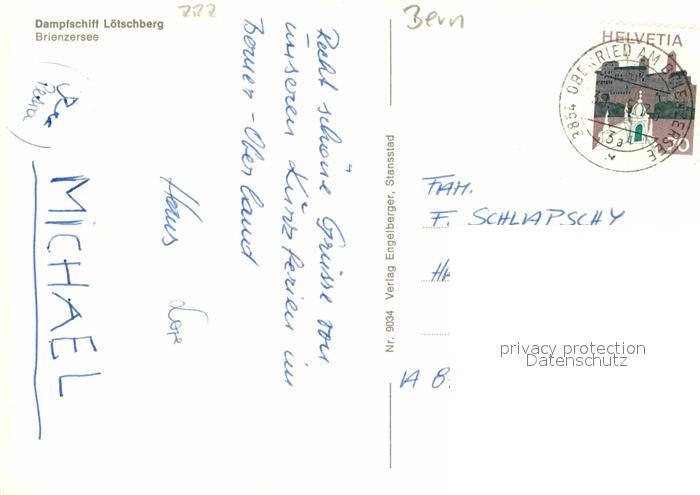 Dampfschiff Lötschberg
Brienzersee
222
Bern
HELVETIA
3854 OBERRIED AM BRIENZERSEE
Recht schöne Grüsse von
unseren Kurzferien im
Berner-Oberland
Hans
Petra
MICHAEL
Nr. 9034 Verlag Engelberger, Stansstad
FAM.
F. SCHLAPSCHY
privacy protection
Datenschutz